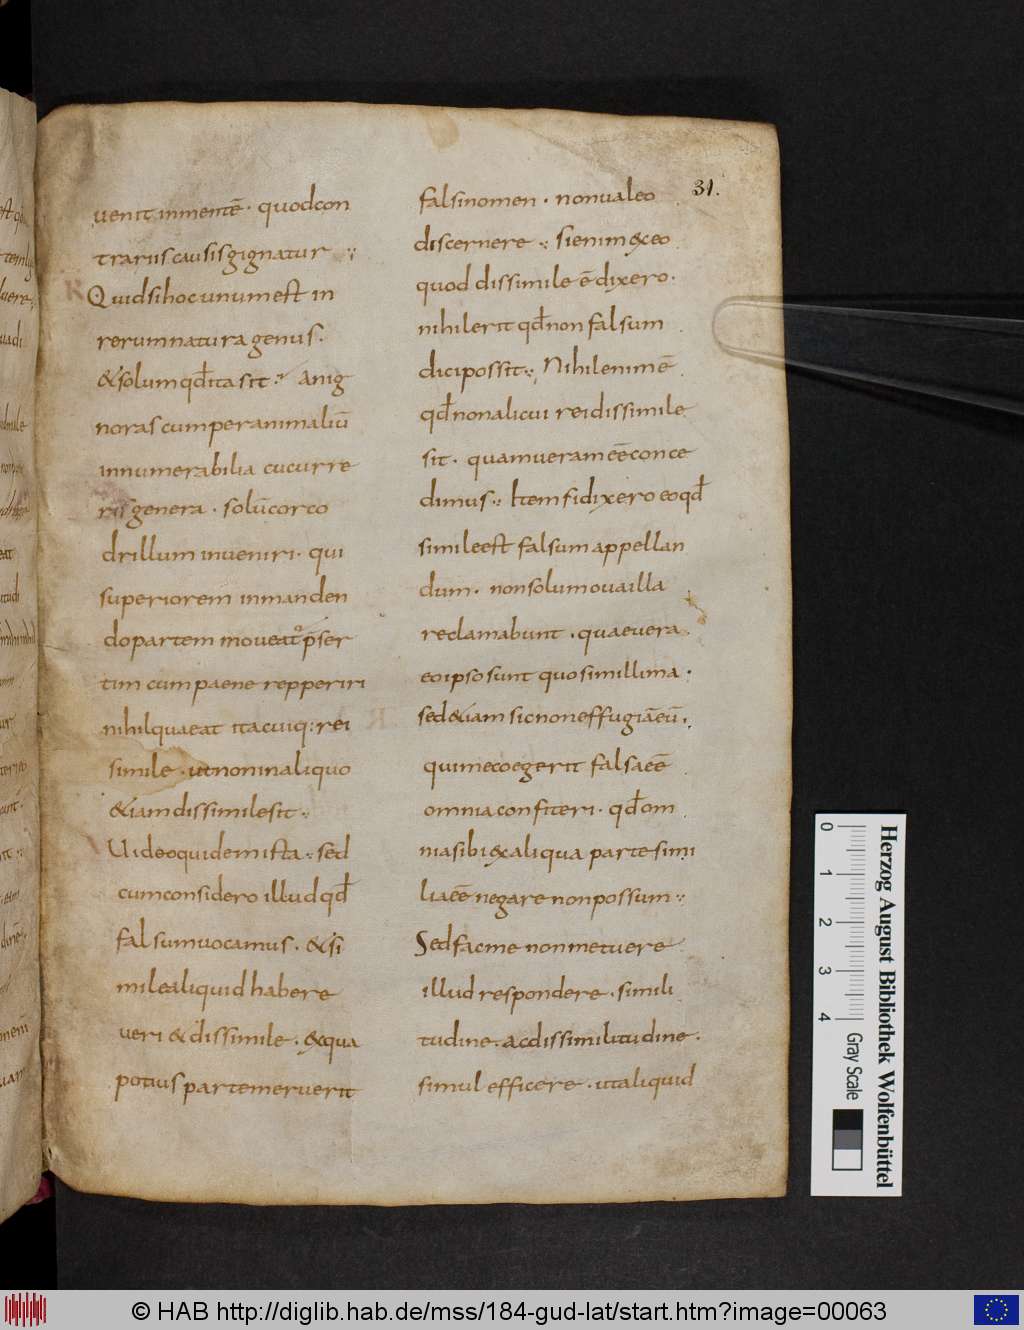 31.
uenit inmentē · quodcon
trariis causis gignatur ·:·
Quidsihocunumest in
rerumnatura genus ·
&solumqd̄ita sit ·:· Anig
noras cumperanimaliū
innumerabilia cucurre
ris genera · solūcorco
drillum inueniri · qui
superiorem inmanden
dopartem moueat p̄ser
tim cum paene repperiri
nihilqueat itacuiq: rei
simile · ut noninaliquo
&iam dissimilesit ·:·
Uideoquidemista ·:· sed
cumconsidero illud qd̄
falsumuocamus · &si
milealiquid habere
ueri & dissimile · exqua
potius partemeruerit
falsinomen · nonualeo
discernere ·:· Sienim exeo
quod dissimile ē dixero ·
nihilerit qd̄non falsum
dicipossit ·:· Nihilenimē
qd̄nonalicui rei dissimile
sit · quamueram eē conce
dimus ·:· Item si dixero eoqd̄
simileest falsum appellan
dum · nonsolumouailla
reclamabunt · quaeuera
eoipsosunt quosimillima ·
sed&iam sicnoneffugiāeū ·
quimecoegerit falsaeē
omniaconfiteri · qd̄om
niasibi exaliqua parte simi
liaeē negare nonpossum ·:·
Sedfacme nonmetuere
illud respondere · simili
tudine · acdissimilitudine ·
simul efficere · utaliquid
Herzog August Bibliothek Wolfenbüttel
0 1 2 3 4 Gray Scale
© HAB http://diglib.hab.de/mss/184-gud-lat/start.htm?image=00063